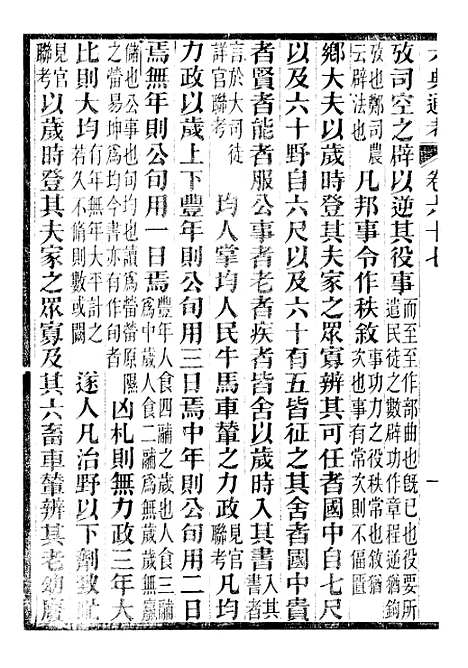 典通考 卷六十七 一
攷司空之辟以逆其役事而至至作部曲也既已也役要所遣民徒之數辟功作章程逆猶鈎
攷也鄭司農云辟法也凡邦事令作秩敘事功力之役秩常也敘猶次也事有常次則不偪匱
鄉大夫以歲時登其夫家之眾寡辨其可任者國中自七尺
以及六十野自六尺以及六十有五皆征之其舍者國中貴
者賢者能者服公事者老者疾者皆舍以歲時入其書入其書者
言於大司徒詳官聯考 均人掌均人民牛馬車輦之力政見官聯考凡均
力政以歲上下豐年則公旬用三日焉中年則公旬用二日
焉無年則公旬用一日焉豐年人食四鬴之歲也人食三鬴爲中歲人食二鬴爲無歲無贏
儲也公事也旬均也讀爲原隰之易坤爲均今書亦有作旬者凶札則無力政三年大
比則大均有年無年大平計之若久不脩則數或闕 遂人凡治野以下劑致甿
見官聯考以歲時登其夫家之眾寡及其六畜車輦辨其老幼廢